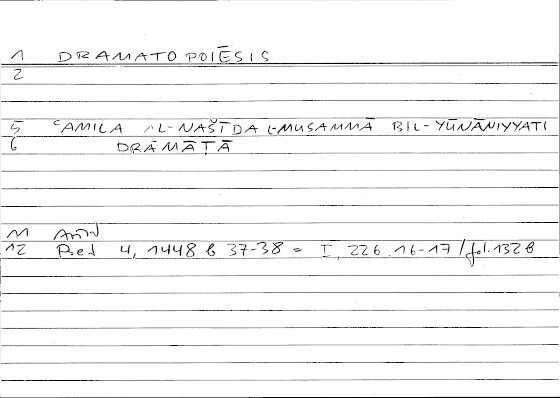 1 DRAMATOPOIĒSIS
2
5 ʿAMILA AL-NAŠĪDA L-MUSAMMĀ BIL-YŪNĀNIYYATI
6 DRĀMĀṬĀ
11
12 Poet 4, 1448 b 37-38 = I, 226.16-17/fol.132b